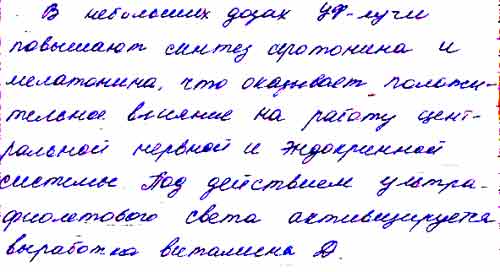 В небольших дозах УФ-лучи
повышают синтез серотонина и
мелатонина, что оказывает положи-
тельное влияние на работу цент-
ральной нервной и эндокринной
системы. Под действием ультра-
фиолетового света активицируется
выработка витамина Д.